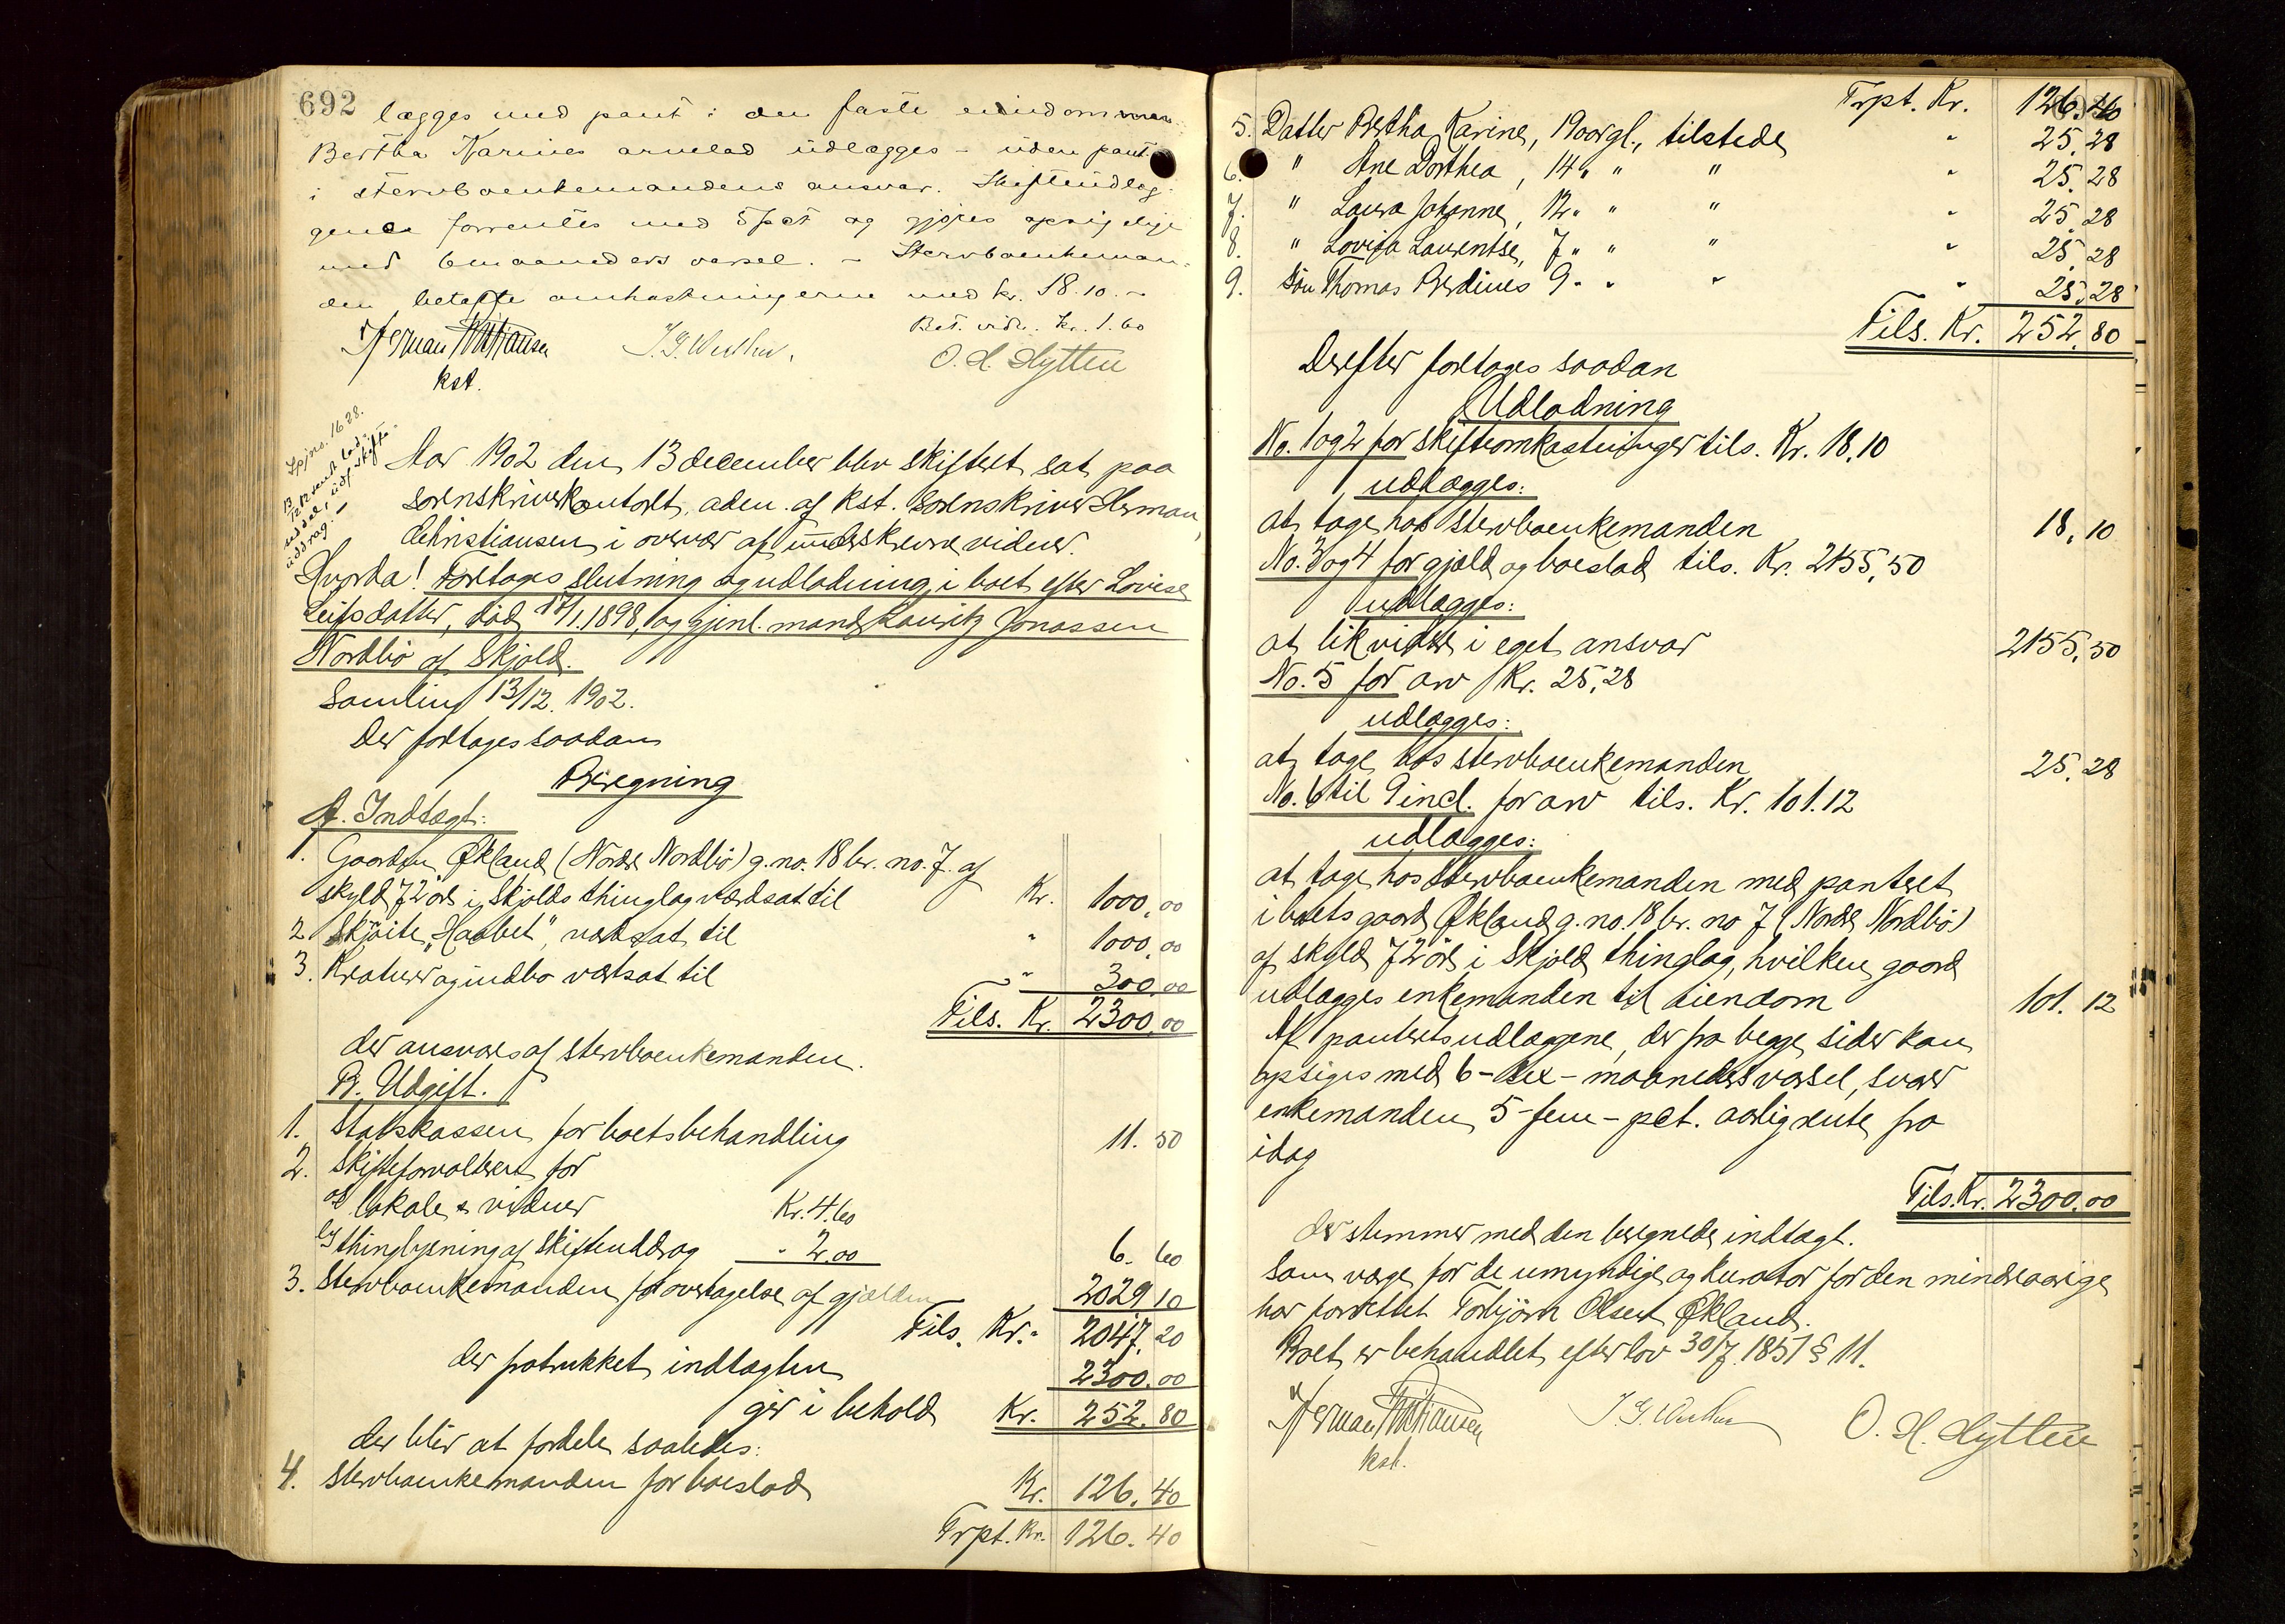 692
lægges med pant i den faste eiendommen.
Bertha Karines arvelod udlægges – uden pant
i stervboenkemandens ansvar. Skifteudlæg-
gene forrentes med 5 pct og gjøres opsigelige
med 6 maaneders varsel. – Stervboenkeman-
den betalte omkostningerne med kr. 18.10. –
Bet. vidn. kr. 1.60
Herman Christiansen
kst.
O. H. Hytten
Aar 1902 den 13 december blev skifteret sat paa
sorenskriverkontoret, adm. af kst. sorenskriver Herman
Christiansen i overvær af underskrevne vidner.
Hvorda! Foretages slutning og udlodning i boet efter Lovise
Leifsdatter, död 17/1.1898, og gjenl. mand Lauritz Jonassen
Nordbö af Skjold.
Samling 13/12. 1902.
Der foretages saadan
Beregning
A. Indtægt:
1. Gaarden Økland (Nordre Nordbö) g. no. 18 br. no. 7. af
skyld 72 öre i Skjolds thinglag værdsat til Kr. 1000,00
2 Skjöite "Haabet", værdsat til " 1000,00
3. Kreaturer og indbo værdsat til " 300,00
Tils. Kr. 2300,00
der ansvares af stervboenkemanden.
B. Udgift.
1. Statskassen for boets behandling 11.50
2. Skifteforvalteren for
a) lokale & vidner Kr. 4.60
b) thinglysning af skifteuddrag " 2,00 6.60
3. Stervboenkemanden for overtagelse af gjælden 2029.10
Tils. Kr. 2047.20
der fratrukket indtægten 2300.00
gir i behold Kr. 252.80
der blir at fordele saaledes:
4. Stervboenkemanden for boeslod Kr. 126.40
Trpt. Kr. 126.40
Trpt. Kr. 126.40
5. Datter Bertha Karine, 19 aar gl., tilstede " 25.28
6. " Ane Dorthea, 14 " " " " 25.28
7. " Laura Johanne, 12 " " " " 25.28
8. " Lovisa Laurentse, 7 " " " " 25.28
9. Sön Thomas Berdines 9 " " " " 25.28
Tils. Kr. 252.80
Derefter foretages saadan
Udlodning
No. 1 og 2 for skifteomkostninger tils. Kr. 18,10
udlægges:
at tage hos stervboenkemanden 18,10
No. 3 og 4 for gjæld og boeslod tils. Kr. 2155,50
udlægges:
at likvidere i eget ansvar 2155,50
No. 5 for arv Kr. 25,28
udlægges:
at tage hos stervboenkemanden 25.28
No. 6 til 9 incl. for arv tils. Kr. 101.12
udlægges:
at tage hos stervboenkemanden med panteret
i boets gaard Økland g. no. 18 br. no 7 (Nordre Nordbö)
af skyld 72 öre i Skjold thinglag, hvilken gaard
udlægges enkemanden til eiendom 101.12
Af panteretsudlæggene, der fra begge sider kan
opsiges med 6 – sex – maaneders varsel, svarer
enkemanden 5 – fem – pct. aarlig rente fra
idag
Tils. Kr. 2300.00
der stemmer med den beregnede indtægt.
Som værge for de umyndige og kurator for den mindreaarige
har forrettet Torbjörn Olsen Økland.
Boet er behandlet efter lov 30/7.1851 § 11.
Herman Christiansen
kst.
O. H. Hytten